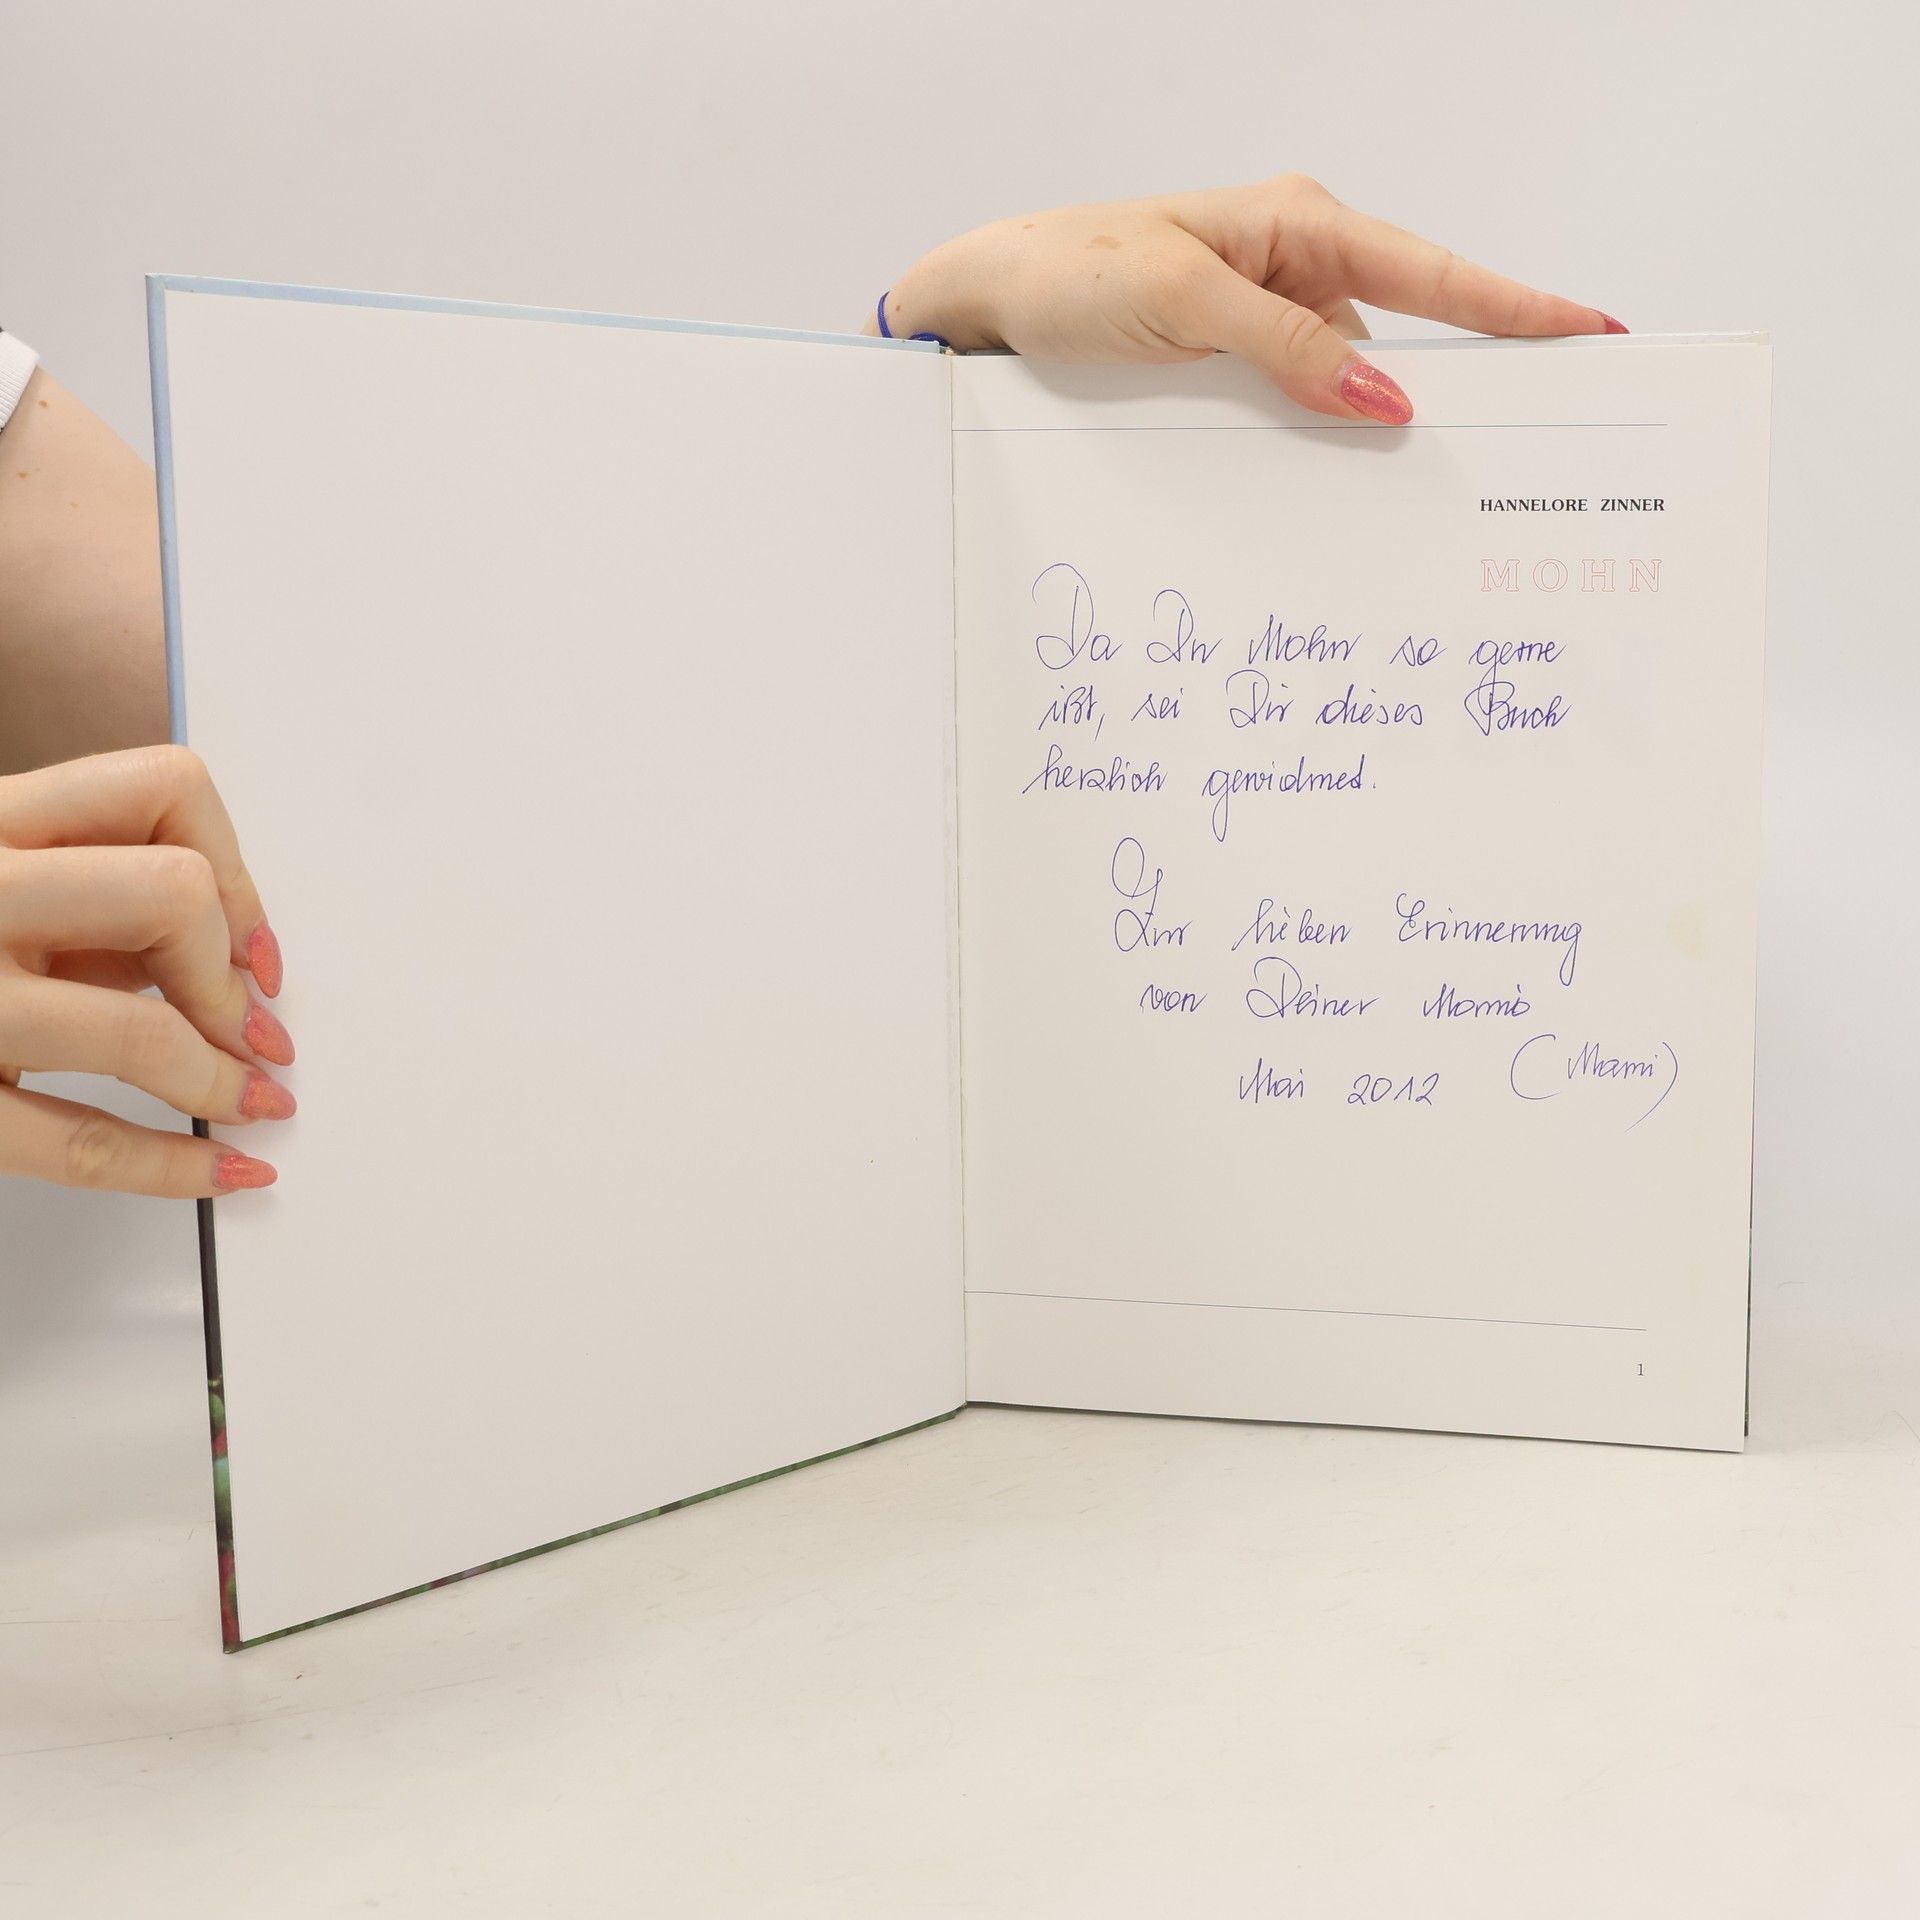 HANNELORE ZINNER
MOHN
Da Du Mohn so gerne
ißt, sei Dir dieses Buch
herzlich gewidmet.
Zur lieben Erinnerung
von Deiner Momò
(Mami)
Mai 2012
1